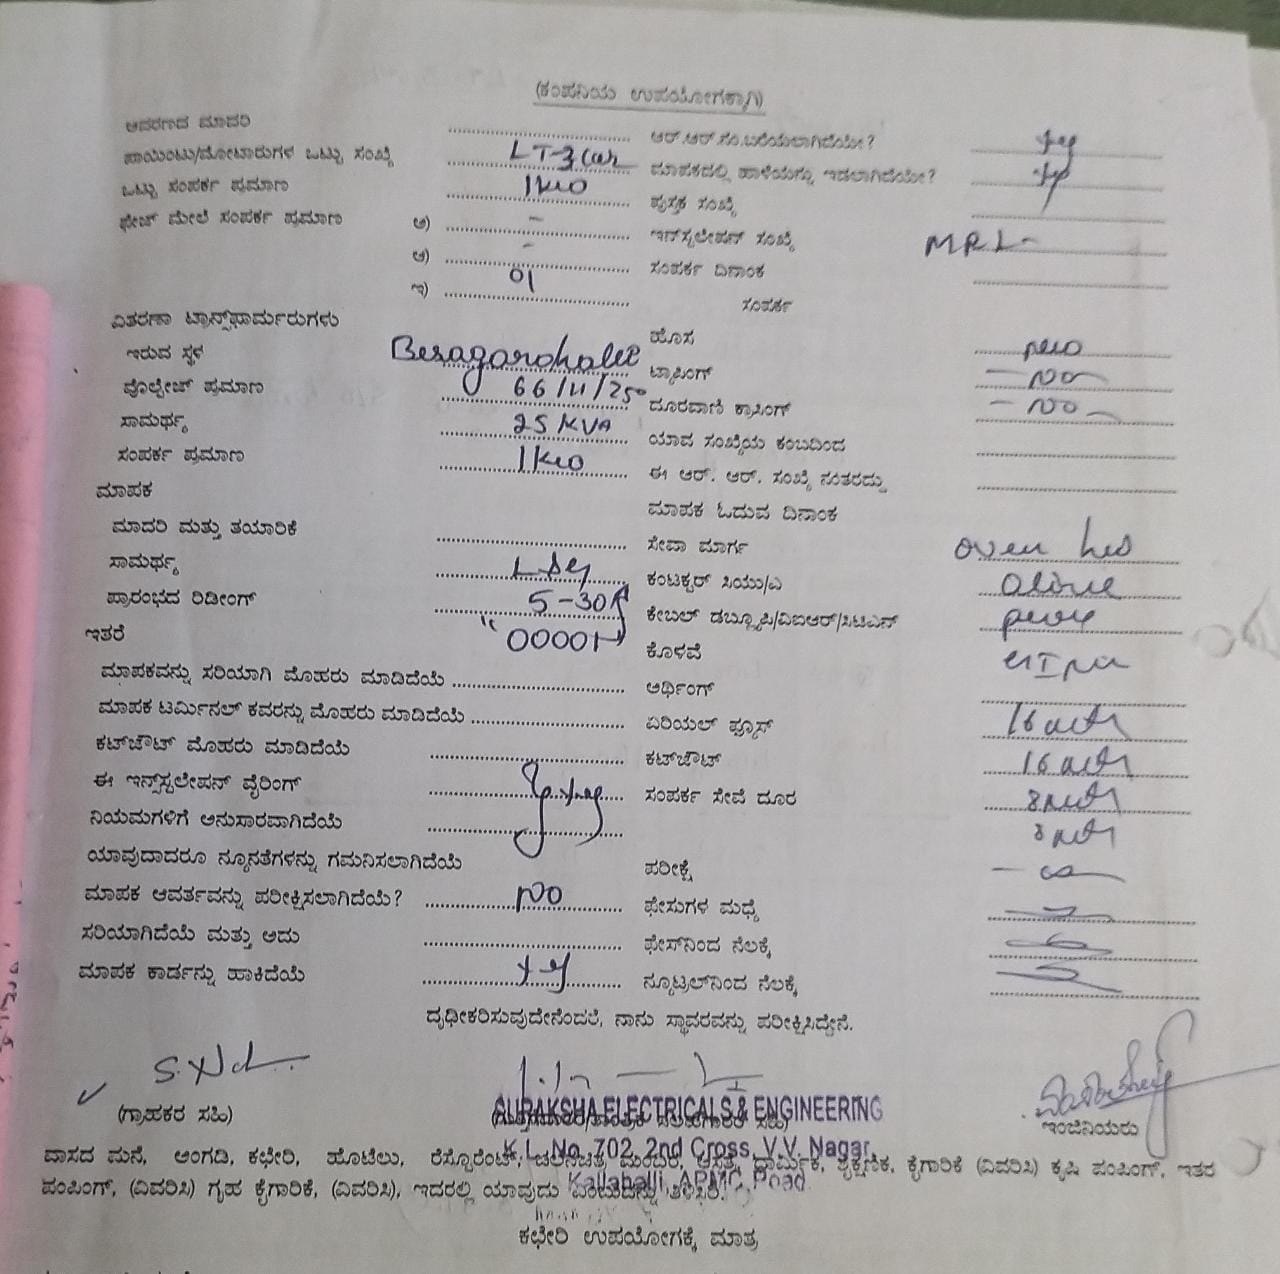 (ಕಂಪನಿಯ ಉಪಯೋಗಕ್ಕಾಗಿ)
ಆವರಣದ ಮಾದರಿ ಆರ್.ಆರ್.ಸಂ.ಬರೆಯಲಾಗಿದೆಯೇ?
ಪಾಯಿಂಟು/ಮೋಟಾರುಗಳ ಒಟ್ಟು ಸಂಖ್ಯೆ LT-3 ಮಾಪಕದಲ್ಲಿ ಹಾಳೆಯನ್ನು ಇಡಲಾಗಿದೆಯೇ?
ಒಟ್ಟು ಸಂಪರ್ಕ ಪ್ರಮಾಣ 1kw ಪುಸ್ತಕ ಸಂಖ್ಯೆ
ಫೇಜ್ ಮೇಲೆ ಸಂಪರ್ಕ ಪ್ರಮಾಣ ಅ) - ಇನ್‌ಸ್ಟಲೇಷನ್ ಸಂಖ್ಯೆ MRL-
ಆ) - ಸಂಪರ್ಕ ದಿನಾಂಕ
ಇ) 01 ಸಂಪರ್ಕ
ವಿತರಣಾ ಟ್ರಾನ್ಸ್‌ಫಾರ್ಮರುಗಳು ಹೊಸ new
ಇರುವ ಸ್ಥಳ Besagarahalli ಟ್ಯಾಪಿಂಗ್ - No -
ವೊಲ್ಟೇಜ್ ಪ್ರಮಾಣ 66/11/250 ದೂರವಾಣಿ ಕ್ರಾಸಿಂಗ್ - No -
ಸಾಮರ್ಥ್ಯ 25 KVA ಯಾವ ಸಂಖ್ಯೆಯ ಕಂಬದಿಂದ
ಸಂಪರ್ಕ ಪ್ರಮಾಣ 1kw ಈ ಆರ್. ಆರ್. ಸಂಖ್ಯೆ ನಂತರದ್ದು
ಮಾಪಕ ಮಾಪಕ ಓದುವ ದಿನಾಂಕ
ಮಾದರಿ ಮತ್ತು ತಯಾರಿಕೆ ಸೇವಾ ಮಾರ್ಗ over hed
ಸಾಮರ್ಥ್ಯ ಕಂಟಕ್ಟರ್ ಸಿಯು/ಎ
ಪ್ರಾರಂಭದ ರಿಡೀಂಗ್ 5-30A ಕೇಬಲ್ ಡಬ್ಲ್ಯೂಪಿ/ವಿಐಆರ್/ಸಿಟಿಎಸ್
ಇತರೆ 00001 ಕೊಳವೆ
ಮಾಪಕವನ್ನು ಸರಿಯಾಗಿ ಮೊಹರು ಮಾಡಿದೆಯೆ ಅರ್ಥಿಂಗ್
ಮಾಪಕ ಟರ್ಮಿನಲ್ ಕವರನ್ನು ಮೊಹರು ಮಾಡಿದೆಯೆ ಏರಿಯಲ್ ಫ್ಯೂಸ್ 16
ಕಟ್‌ಔಟ್ ಮೊಹರು ಮಾಡಿದೆಯೆ ಕಟ್‌ಔಟ್ 16
ಈ ಇನ್ಸ್‌ಸ್ಟಲೇಷನ್ ವೈರಿಂಗ್ ಸಂಪರ್ಕ ಸೇವೆ ದೂರ 8
ನಿಯಮಗಳಿಗೆ ಅನುಸಾರವಾಗಿದೆಯೆ 8
ಯಾವುದಾದರೂ ನ್ಯೂನತೆಗಳನ್ನು ಗಮನಿಸಲಾಗಿದೆಯೆ ಪರೀಕ್ಷೆ
ಮಾಪಕ ಆವರ್ತವನ್ನು ಪರೀಕ್ಷಿಸಲಾಗಿದೆಯೆ? No ಫೇಸುಗಳ ಮಧ್ಯೆ
ಸರಿಯಾಗಿದೆಯೆ ಮತ್ತು ಅದು ಫೇಸ್‌ನಿಂದ ನೆಲಕ್ಕೆ
ಮಾಪಕ ಕಾರ್ಡನ್ನು ಹಾಕಿದೆಯೆ ನ್ಯೂಟ್ರಲ್‌ನಿಂದ ನೆಲಕ್ಕೆ
ದೃಢೀಕರಿಸುವುದೇನೆಂದರೆ, ನಾನು ಸ್ಥಾವರವನ್ನು ಪರೀಕ್ಷಿಸಿದ್ದೇನೆ.
SURAKSHA ELECTRICALS & ENGINEERING
(ಗ್ರಾಹಕರ ಸಹಿ) ಇಂಜಿನಿಯರು
K.L. No. 702, 2nd Cross, V.V. Nagar,
ವಾಸದ ಮನೆ, ಅಂಗಡಿ, ಕಛೇರಿ, ಹೊಟೆಲು, ರೆಸ್ಟೊರೆಂಟ್, ಚಲನಚಿತ್ರ ಮಂದಿರ, ಆಸ್ಪತ್ರೆ, ಧಾರ್ಮಿಕ, ಶೈಕ್ಷಣಿಕ, ಕೈಗಾರಿಕೆ (ವಿವರಿಸಿ) ಕೃಷಿ ಪಂಪಿಂಗ್, ಇತರ
Kallahalli, APMC Road
ಪಂಪಿಂಗ್, (ವಿವರಿಸಿ) ಗೃಹ ಕೈಗಾರಿಕೆ, (ವಿವರಿಸಿ), ಇದರಲ್ಲಿ ಯಾವುದು ಎಂಬುದನ್ನು ತಿಳಿಸಿರಿ.
ಕಛೇರಿ ಉಪಯೋಗಕ್ಕೆ ಮಾತ್ರ